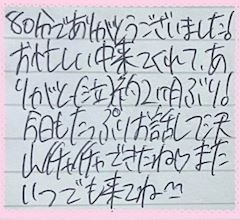 80分でありがとうございました!
お忙しい中来てくれて、あ
りがと(泣)約2ヶ月ぶり!
今日もたっぷりお話して沢
山イチャイチャできたね♡また
いつでも来てね^^